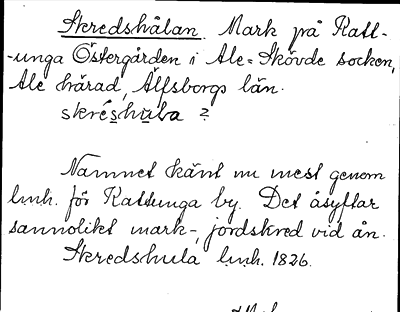 Skredshålan. Mark på Katt-
-unga Östergården i Ale-Skövde socken,
Ale härad, Älfsborgs län.
skréshula ?
Namnet känt nu mest genom
lmh. för Kattunga by. Det åsyftar
sannolikt mark-, jordskred vid ån.
Skredshula lmh. 1826.